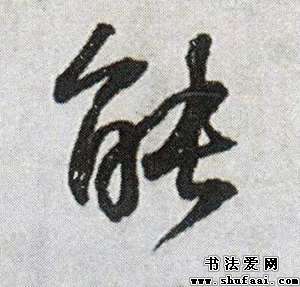 能
书法爱网
www.shufaai.com